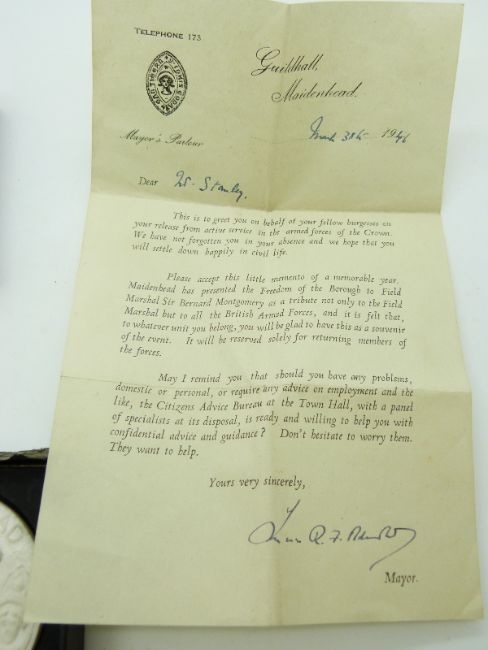 TELEPHONE 173
Guildhall,
Maidenhead.
March 30th 1946
Mayor's Parlour
Dear Mr. Stanley,
This is to greet you on behalf of your fellow burgesses on
your release from active service in the armed forces of the Crown.
We have not forgotten you in your absence and we hope that you
will settle down happily in civil life.
Please accept this little memento of a memorable year.
Maidenhead has presented the Freedom of the Borough to Field
Marshal Sir Bernard Montgomery as a tribute not only to the Field
Marshal but to all the British Armed Forces, and it is felt that,
to whatever unit you belong, you will be glad to have this as a souvenir
of the event. It will be reserved solely for returning members of
the forces.
May I remind you that should you have any problems,
domestic or personal, or require any advice on employment and the
like, the Citizens Advice Bureau at the Town Hall, with a panel
of specialists at its disposal, is ready and willing to help you with
confidential advice and guidance? Don't hesitate to worry them.
They want to help.
Yours very sincerely,
Mayor.